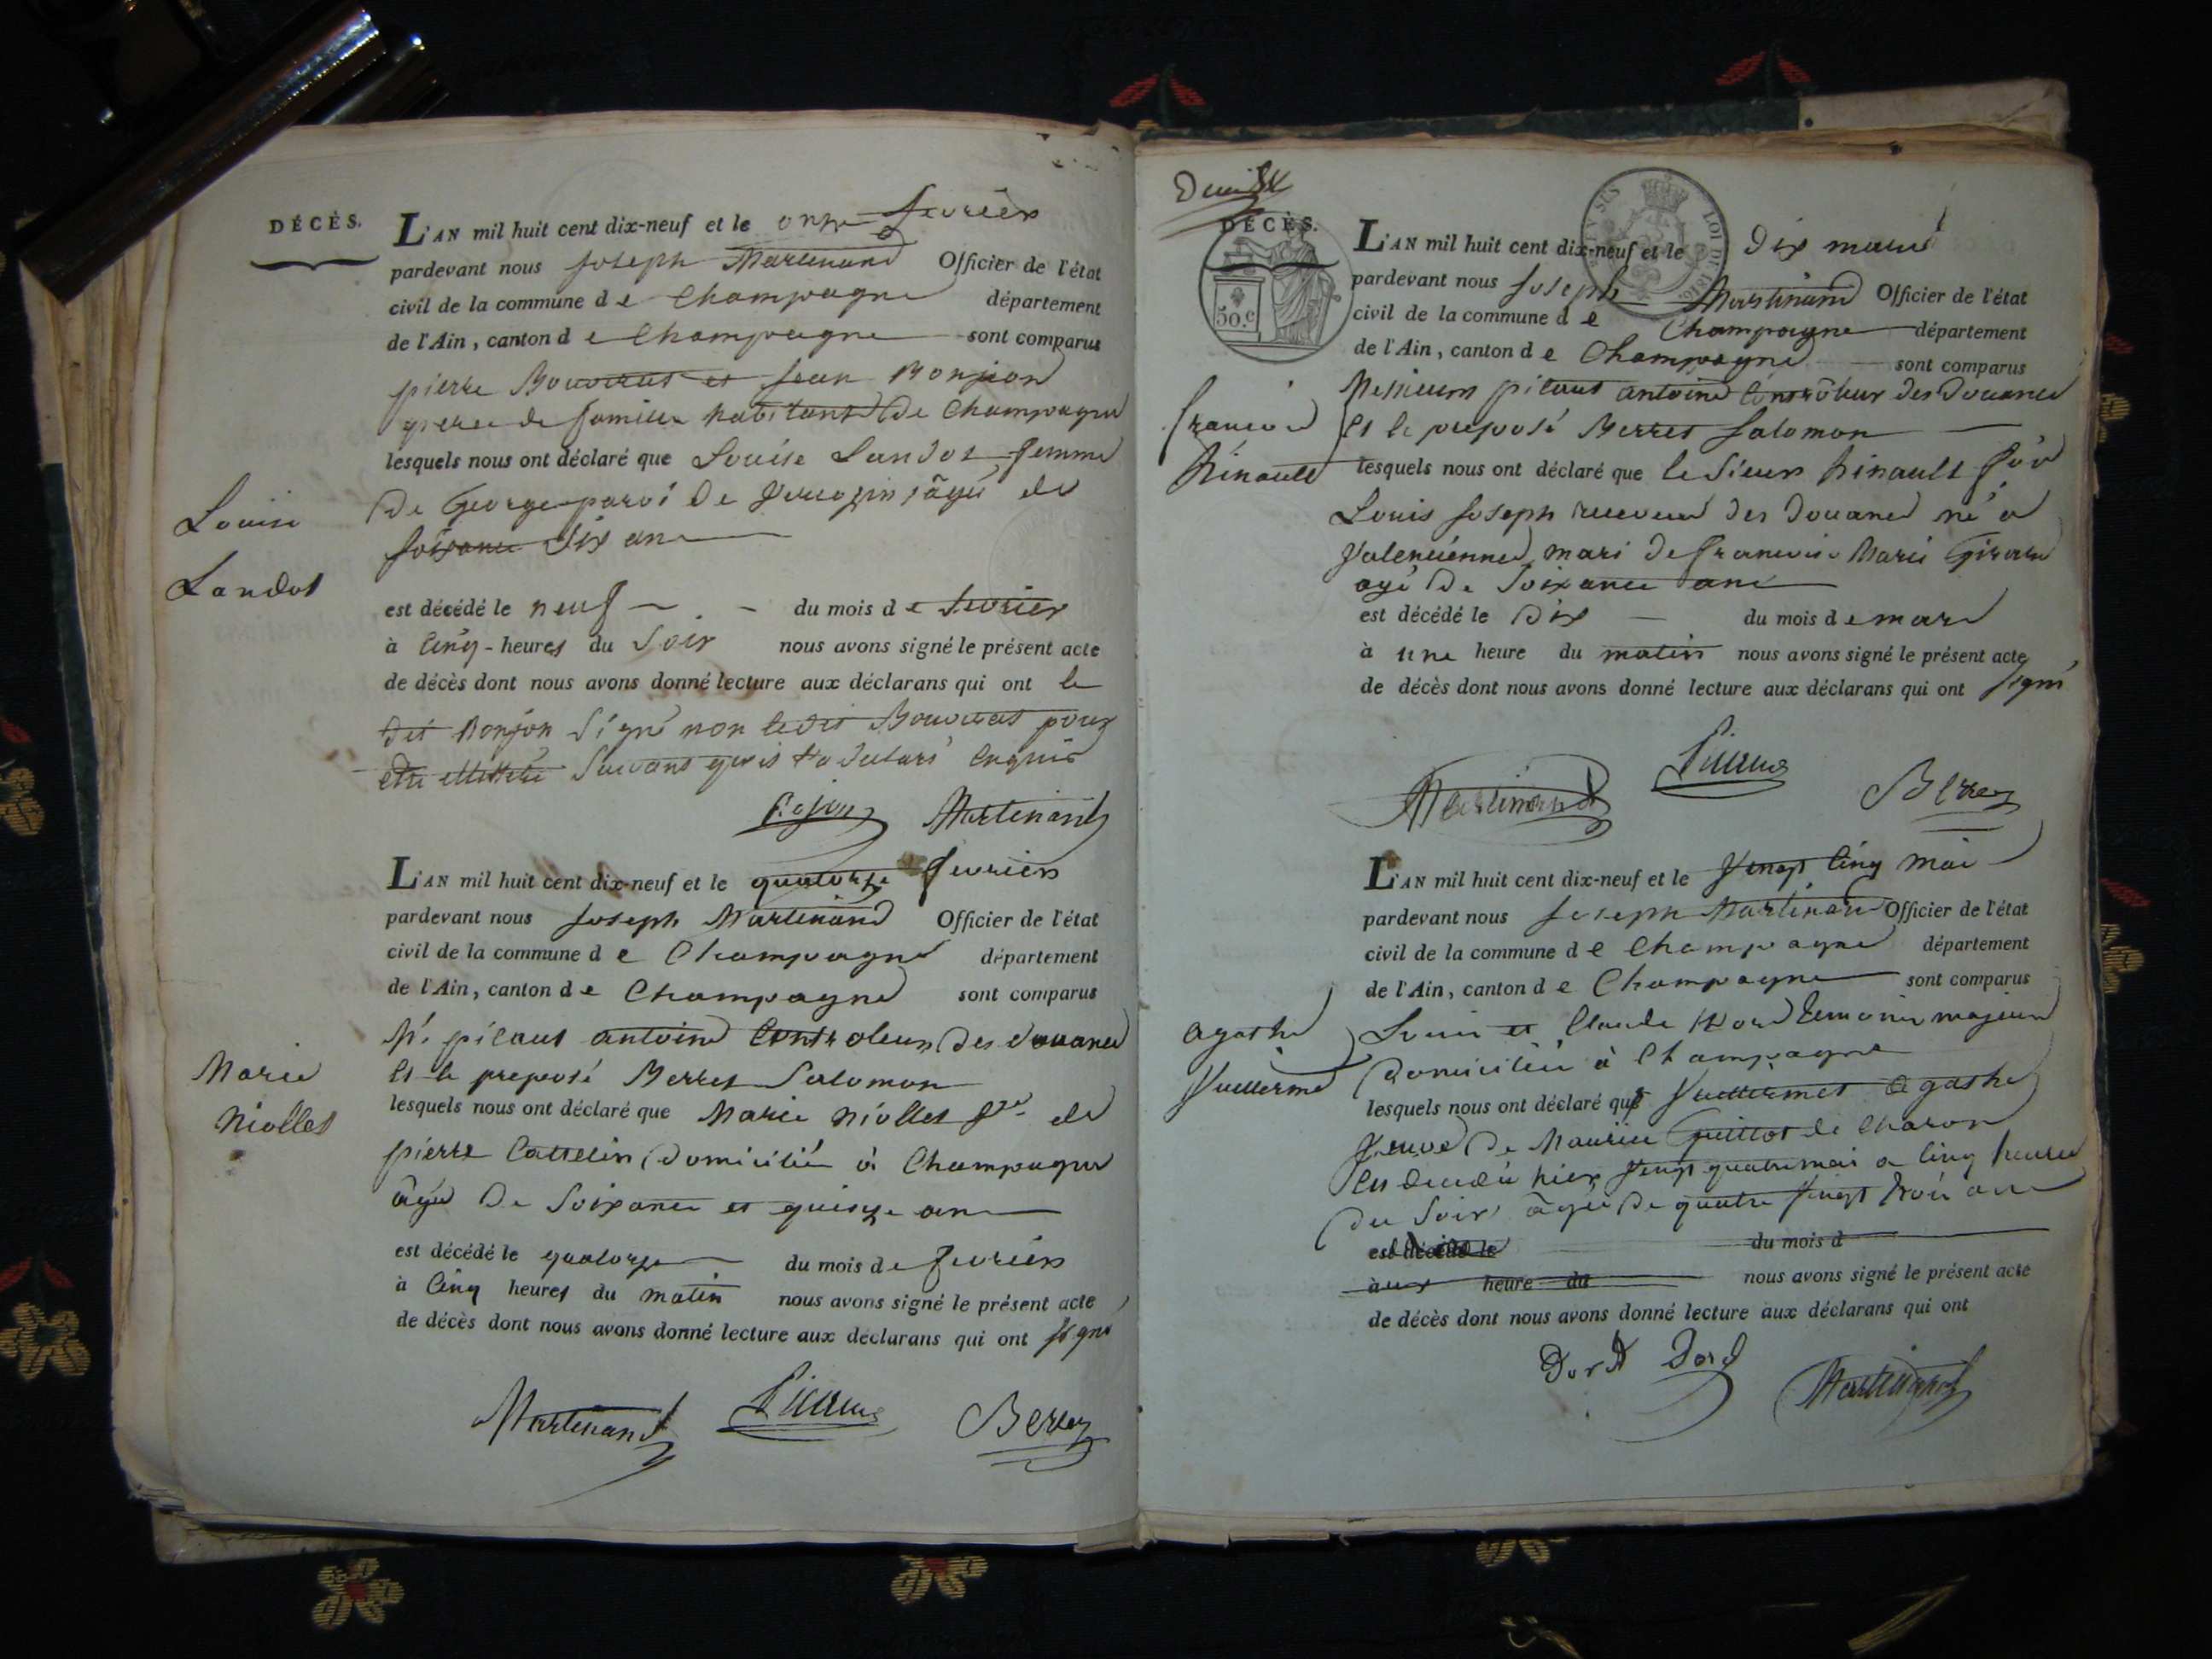 DÉCÈS.
L'AN mil huit cent dix-neuf et le onze fevrier
pardevant nous joseph Martinand Officier de l'état
civil de la commune de Champagne département
de l'Ain, canton de Champagne sont comparus
pierre Bouvrat et jean Bonjon
peres de famille habitants de Champagne
lesquels nous ont déclaré que Louise Landot femme
Louise
de George paroi de âgée de
soixante dix ans
Landot
est décédé le neuf du mois de fevrier
à Cinq heures du Soir nous avons signé le présent acte
de décès dont nous avons donné lecture aux déclarans qui ont le
dit Bonjon Signé non ledit Bouvrat pour
etre illitéré Suivant qu'il l'a declaré Enquis
Martinand
L'AN mil huit cent dix-neuf et le quatorze fevrier
pardevant nous joseph Martinand Officier de l'état
civil de la commune de Champagne département
de l'Ain, canton de Champagne sont comparus
Mr. pitaut antoine Controleur des douanes
Marie
Et le preposé Berret Salomon
Niollet
lesquels nous ont déclaré que Marie Niollet de
pierre Cattelin domicilié à Champagne
âgée De Soixante et quinze ans
est décédé le quatorze du mois de fevrier
à Cinq heures du matin nous avons signé le présent acte
de décès dont nous avons donné lecture aux déclarans qui ont signé
Martinand Berret
DÉCÈS.
50.c
LOI DE 1816.
L'AN mil huit cent dix-neuf et le Dix mars
pardevant nous joseph Martinand Officier de l'état
civil de la commune de Champagne département
de l'Ain, canton de Champagne sont comparus
Messieurs pitaut antoine Contrôleur des Douanes
francois
Et le preposé Berret Salomon
hinault
lesquels nous ont déclaré que le Sieur hinault fois
Louis joseph receveur des Douanes né a
Valenciennes, mari de francoise Marie Girard
agé de Soixante ans
est décédé le Dix du mois de mars
à une heure du matin nous avons signé le présent acte
de décès dont nous avons donné lecture aux déclarans qui ont signé
Martinand Berret
L'AN mil huit cent dix-neuf et le Vingt Cinq mai
pardevant nous joseph Martinand Officier de l'état
civil de la commune de Champagne département
de l'Ain, canton de Champagne sont comparus
agathe
Louis et Claude Dord temoins majeurs
Domiciliés à Champagne
Vuillerme
lesquels nous ont déclaré que Vuillermet agathe
Veuve De Maurice Guillot de Charon
Est decedée hier Vingt quatre mai a Cinq heures
du Soir âgée De quatre Vingt trois ans
est décédé le du mois d
à heure du nous avons signé le présent acte
de décès dont nous avons donné lecture aux déclarans qui ont
Dord Dord
Martinand